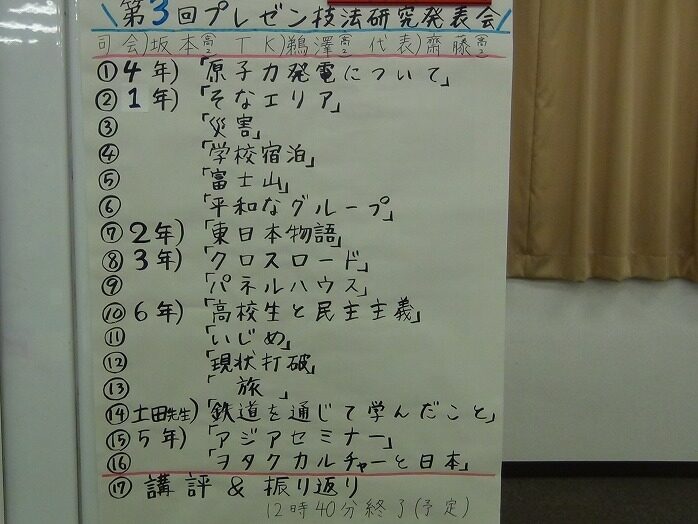 第3回プレゼン技法研究発表会
司会)坂本高2 TK)鵜澤高2 代表)齋藤高2
①4年)「原子力発電について」
②1年)「そなエリア」
③「災害」
④「学校宿泊」
⑤「富士山」
⑥「平和なグループ」
⑦2年)「東日本物語」
⑧3年)「クロスロード」
⑨「パネルハウス」
⑩6年)「高校生と民主主義」
⑪「いじめ」
⑫「現状打破」
⑬「旅」
⑭土田先生)「鉄道を通じて学んだこと」
⑮5年)「アジアセミナー」
⑯「ヲタクカルチャーと日本」
⑰講評&振り返り
12時40分終了(予定)